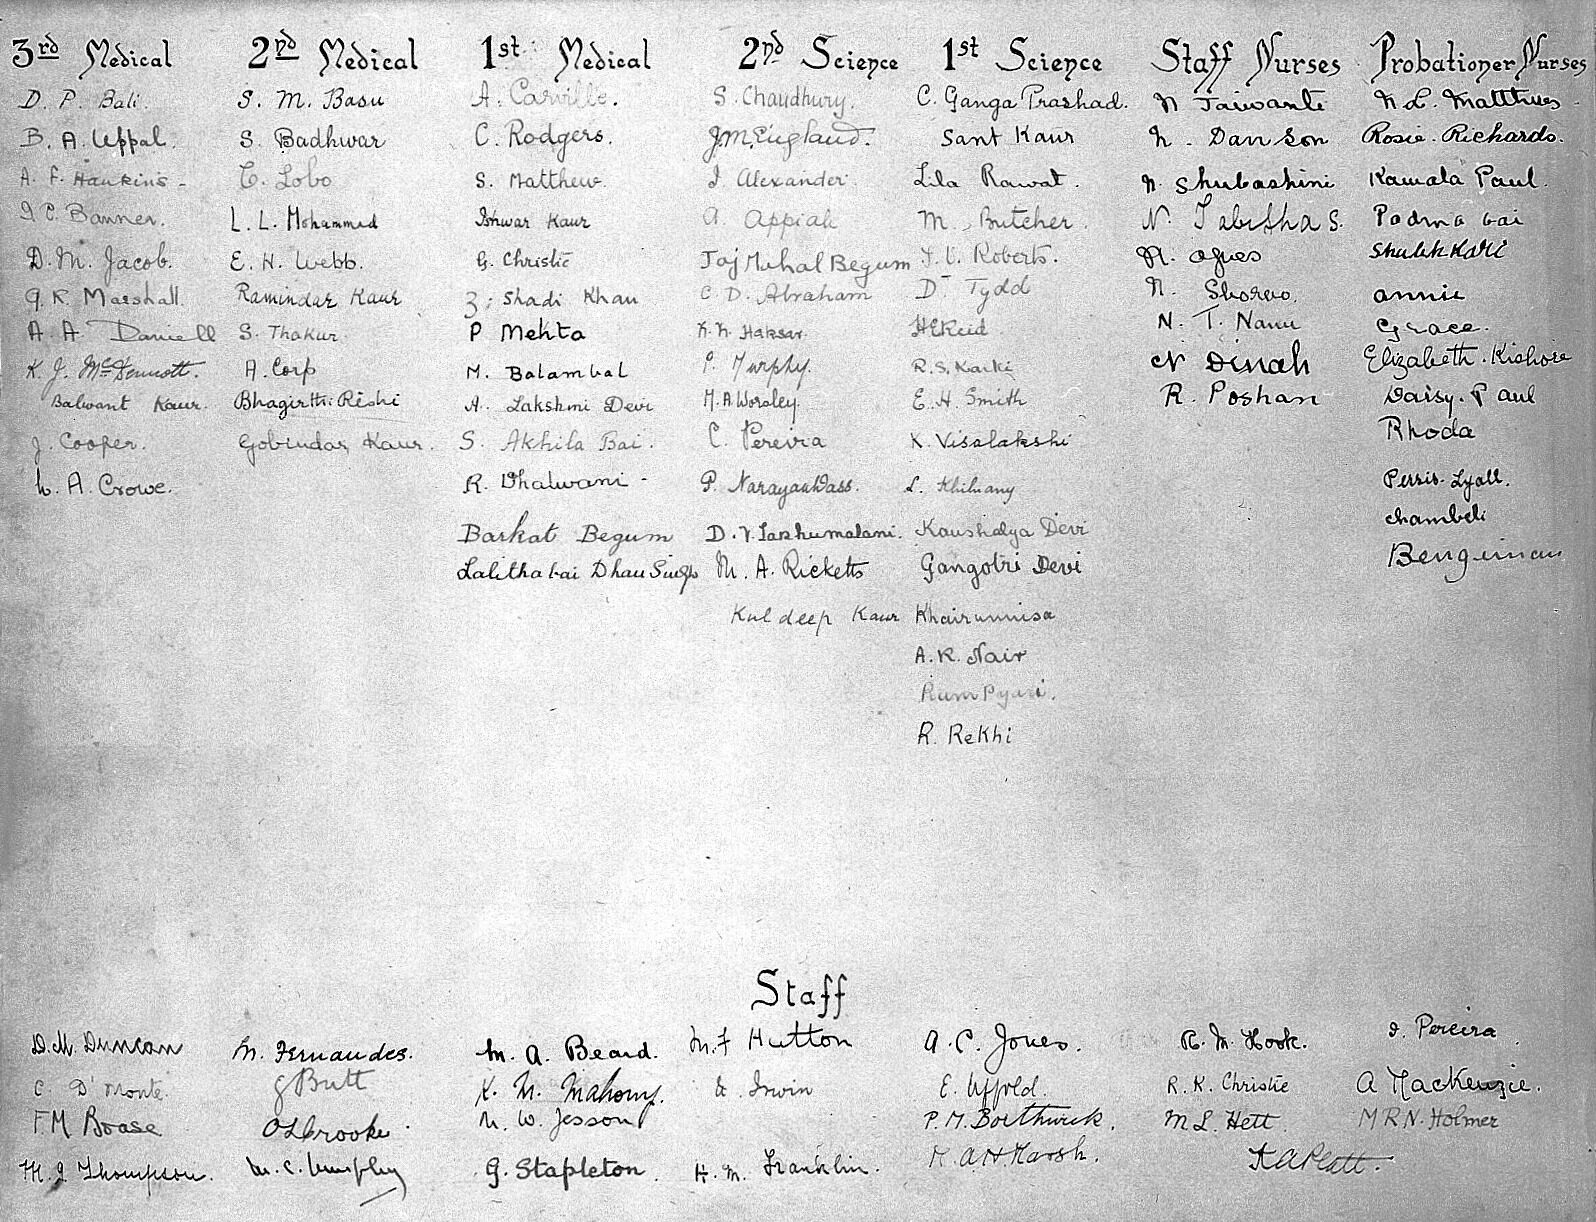 3rd Medical
D. P. Bali.
B. A. Uppal.
A. F. Hankins -
I. C. Banner.
D. M. Jacob.
G. R. Marshall.
A. A. Daniell
K. J. McDermott.
Balwant Kaur.
J. Cooper.
L. A. Crowe.
2nd Medical
S. M. Basu
S. Badhwar
C. Lobo
L. L. Mohammed
E. H. Webb.
Ramindar Kaur
S. Thakur.
A. Corp
Bhagirthi Rishi
Gobindar Kaur.
1st Medical
A. Carville.
C. Rodgers.
S. Matthew.
Ishwar Kaur
G. Christie
Z. Shadi Khan
P Mehta
M. Balambal
A. Lakshmi Devi
S. Akhila Bai.
R. Dhalwani -
Barkat Begum
Lalithabai Dhan Singh
2nd Science
S. Chaudhury.
J. M. England.
I. Alexander.
A. Appiah
Taj Mahal Begum
C. D. Abraham
K. N. Haksar.
P. Murphy.
M. A. Worsley.
C. Pereira
P. Narayan Dass.
D. V. Lakhumalani.
M. A. Ricketts
Kuldeep Kaur
1st Science
C. Ganga Prashad.
Sant Kaur
Lila Rawat.
M. Butcher.
F. V. Roberts.
D Tydd
H E Reid
R. S. Karki
E. H. Smith
K. Visalakshi
L. Khilnany
Kaushalya Devi
Gangotri Devi
Khairunnisa
A. K. Nair
Ram Pyari.
R. Rekhi
Staff Nurses
N Jaiwanti
N. Danson
N. Shubashini
N. Tabitha S.
N. Agnes
N.
N. T. Nanu
N Dinah
R. Poshan
Probationer Nurses
N. L. Matthews
Rosie. Richards.
Kamala Paul.
Padma bai
annie
Grace.
Elizabeth. Kishore
Daisy. Paul
Rhoda
Persis. Lyall.
chambeli
Staff
D. M. Duncan
M. Fernandes.
M. A. Beard.
M. F Hutton
A. C. Jones.
R. M. Hook.
I. Pereira
C D'Monte.
G Butt
K. M. Mahony.
E Irwin
E. Uffold.
R. K. Christie
A MacKenzie.
F M Boase
N. W. Jesson
P. M. Borthwick.
M L. Hett.
M R N. Holmer
M. J Thompson.
M. C. Murphy
G. Stapleton
H. M. Franklin.
M. A. H. Marsh.
K A Platt.